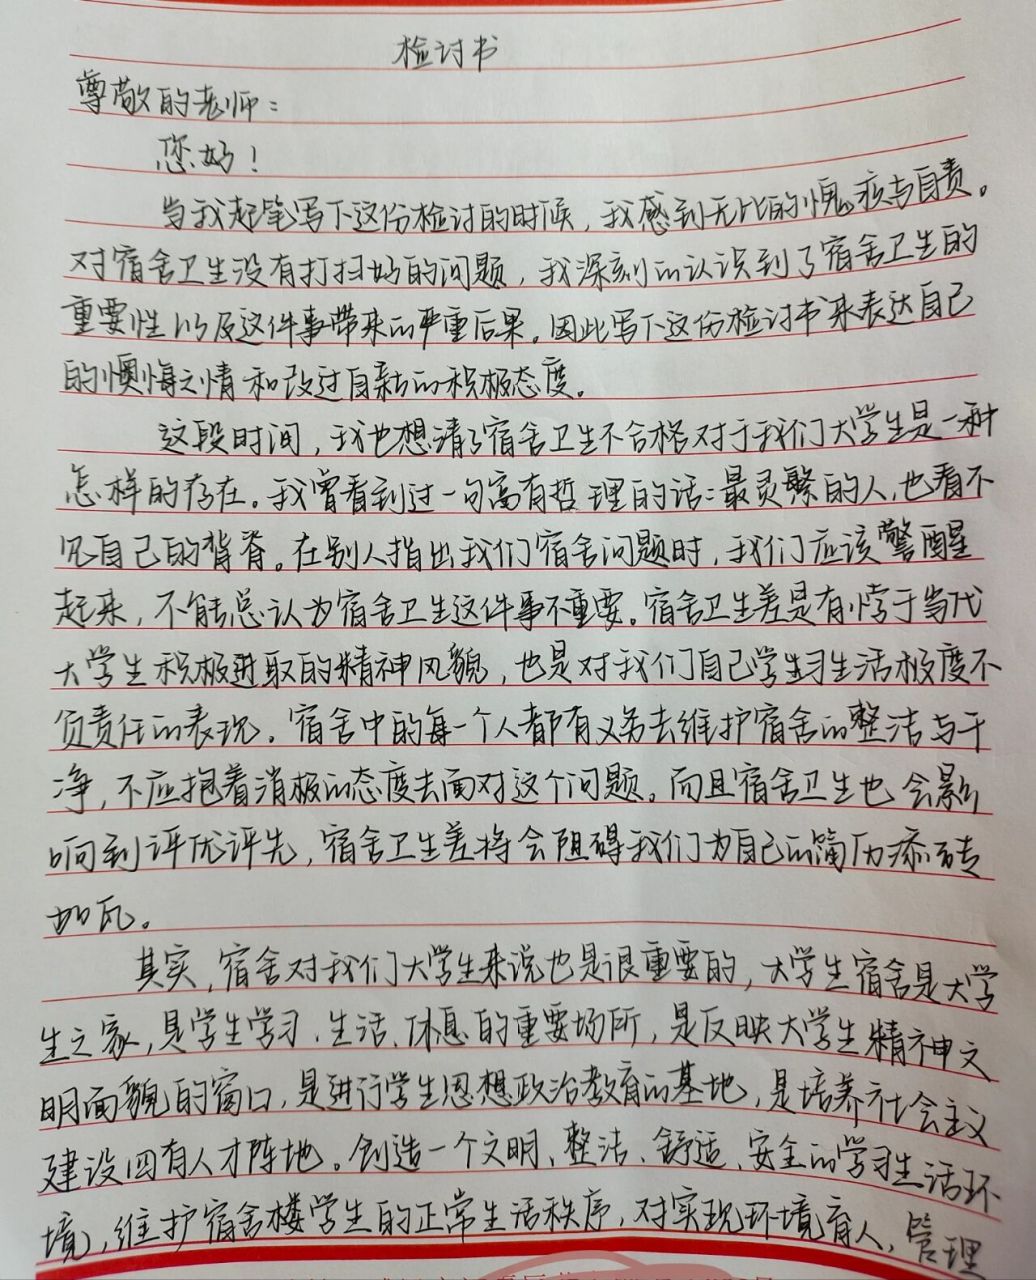 检讨书
尊敬的老师：
您好！
当我起笔写下这份检讨的时候，我感到无比的愧疚与自责。
对宿舍卫生没有打扫好的问题，我深刻的认识到了宿舍卫生的
重要性以及这件事带来的严重后果。因此写下这份检讨书来表达自己
的懊悔之情和改过自新的积极态度。
这段时间，我也想清了宿舍卫生不合格对于我们大学生是一种
怎样的存在。我曾看到过一句富有哲理的话：最灵敏的人，也看不
见自己的背脊。在别人指出我们宿舍问题时，我们应该警醒
起来，不能总认为宿舍卫生这件事不重要。宿舍卫生差是有悖于当代
大学生积极进取的精神风貌，也是对我们自己学生习生活极度不
负责任的表现。宿舍中的每一个人都有义务去维护宿舍的整洁与干
净，不应抱着消极的态度去面对这个问题。而且宿舍卫生也会影
响到评优评先，宿舍卫生差将会阻碍我们为自己的简历添砖
加瓦。
其实，宿舍对我们大学生来说也是很重要的，大学生宿舍是大学
生之家，是学生学习、生活、休息的重要场所，是反映大学生精神文
明面貌的窗口，是进行学生思想政治教育的基地，是培养社会主义
建设四有人才阵地。创造一个文明、整洁、舒适、安全的学习生活环
境，维护宿舍楼学生的正常生活秩序，对实现环境育人，管理